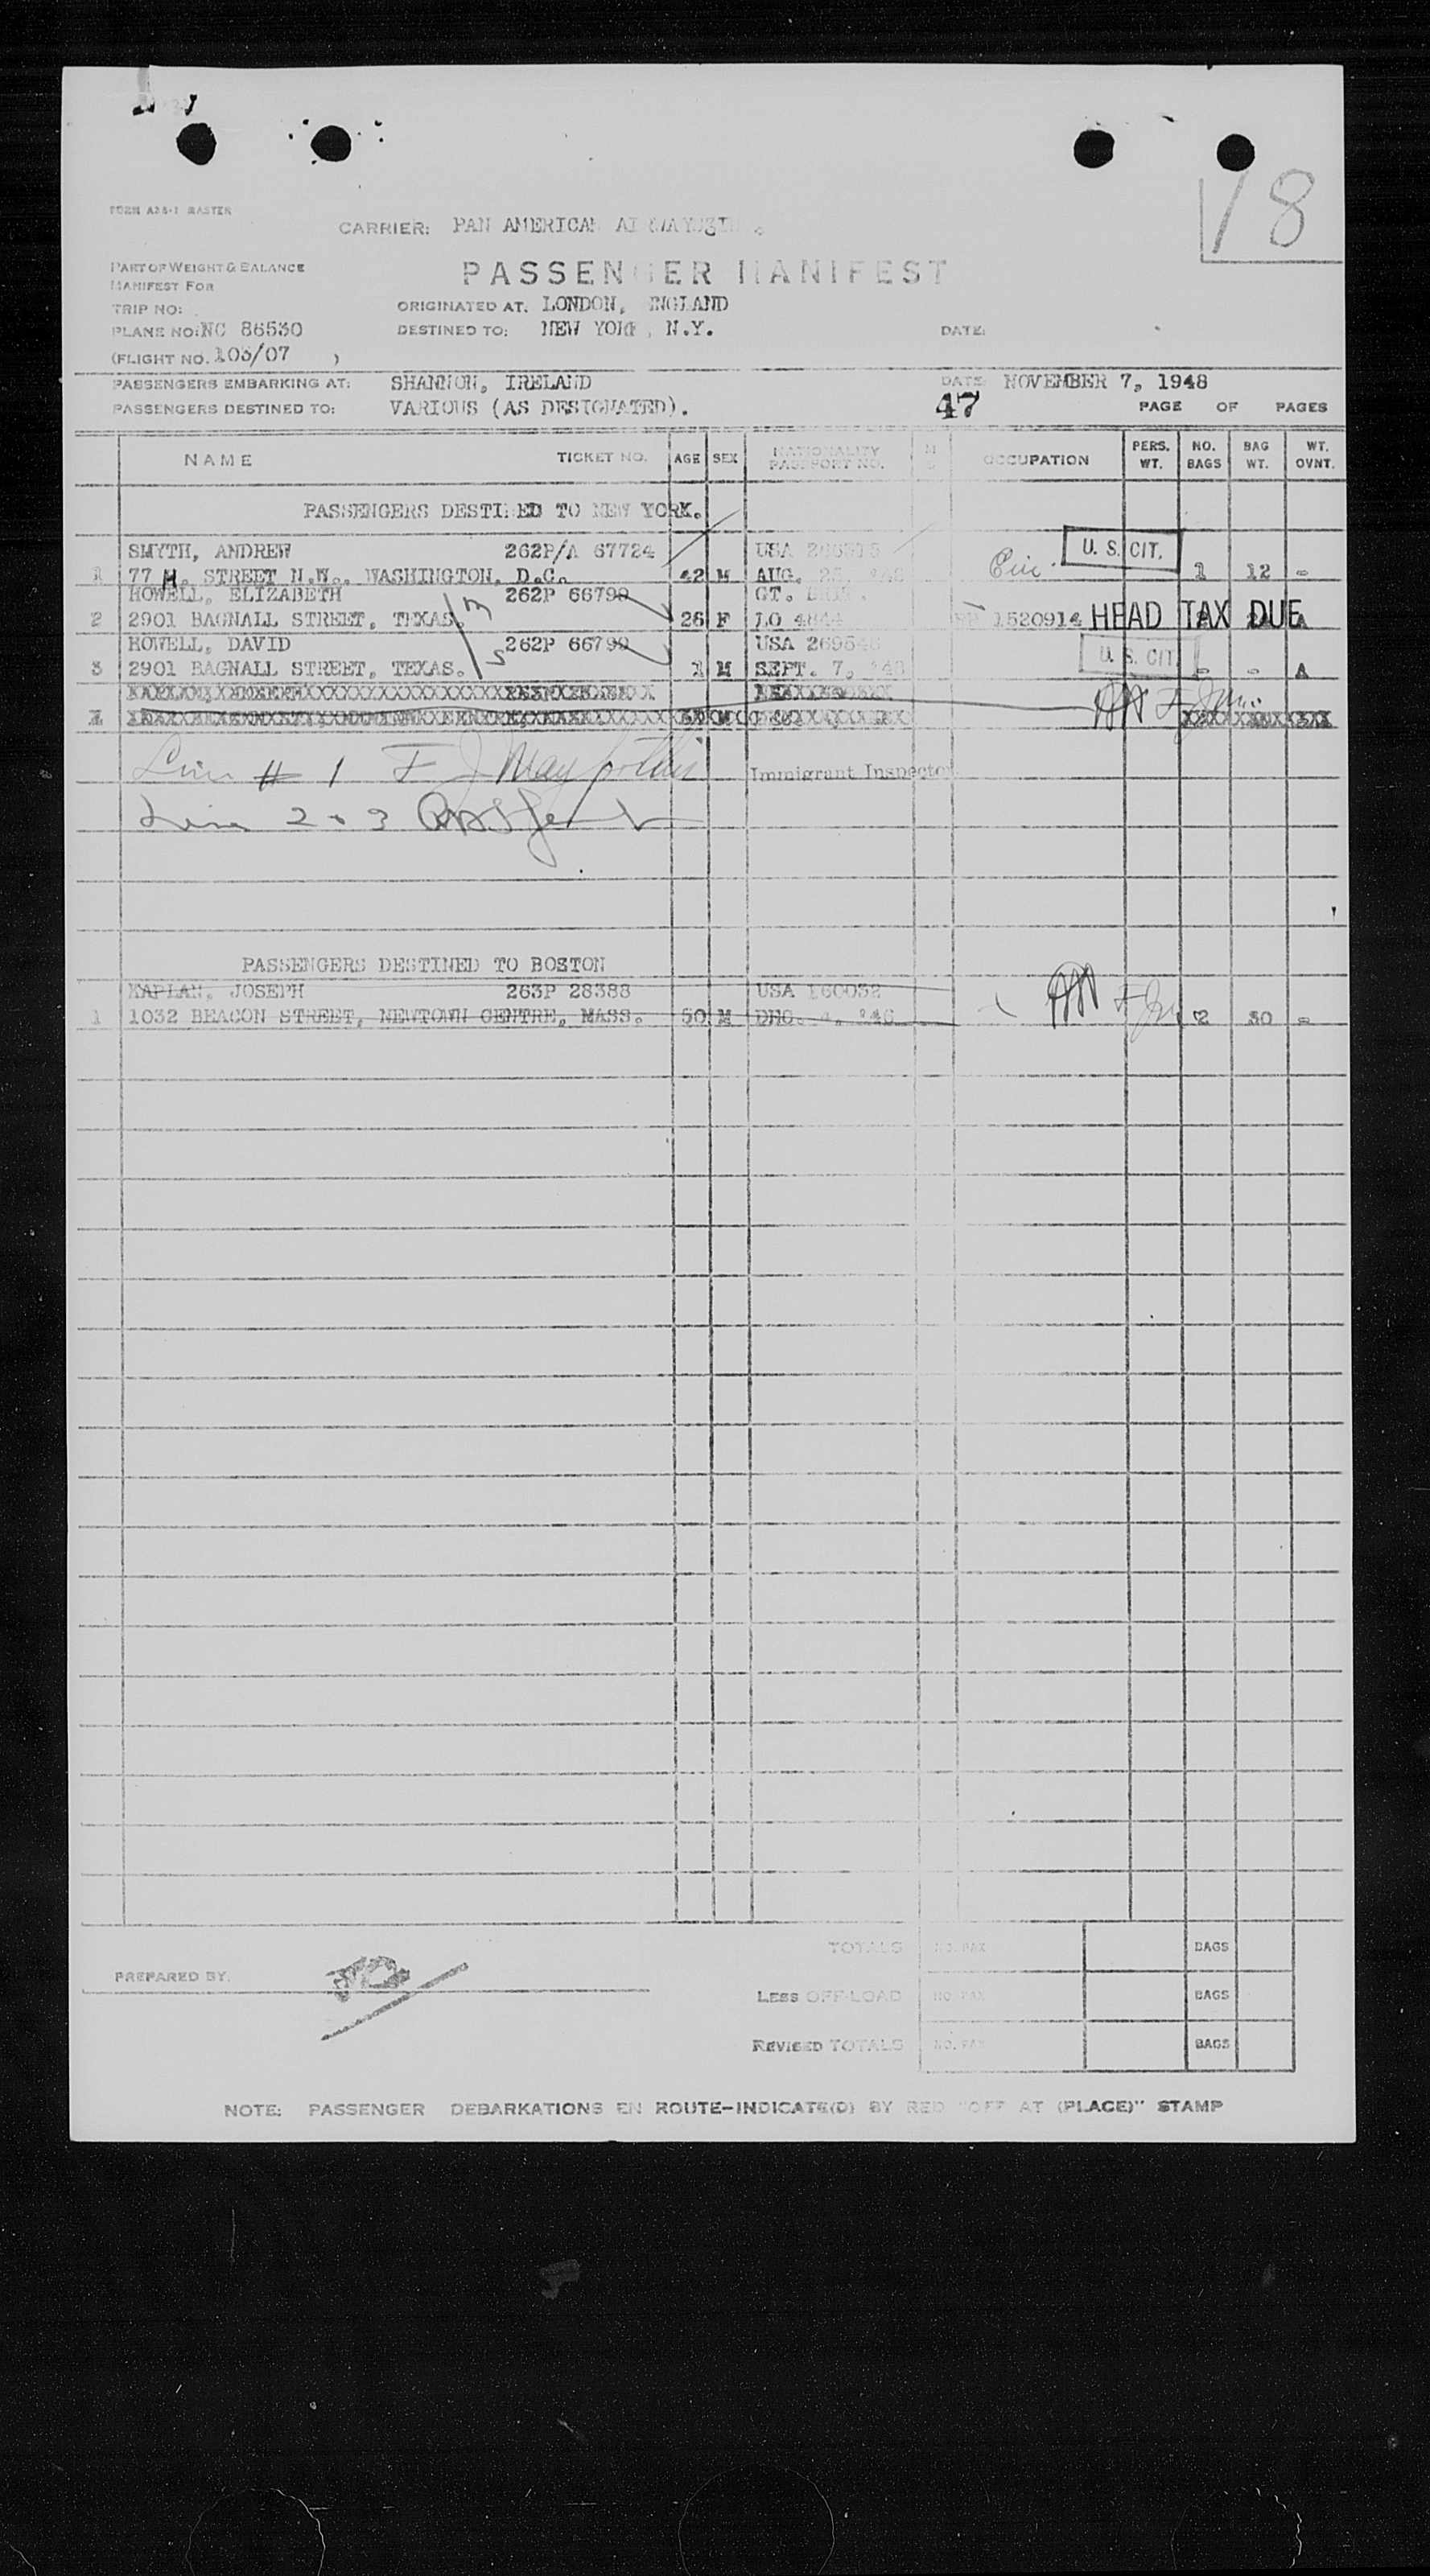 18
FORM
MASTER
CARRIER: PAN AMERICAN
PART OF WEIGHT & BALANCE
MANIFEST FOR
PASSENGER MANIFEST
TRIP NO:
ORIGINATED AT. LONDON, ENGLAND
PLANE NO: NC 86530
DESTINED TO: NEW YORK, N.Y.
DATE:
(FLIGHT NO. 103/07 )
PASSENGERS EMBARKING AT: SHANNON, IRELAND
DATE: NOVEMBER 7, 1948
PASSENGERS DESTINED TO: VARIOUS (AS DESIGNATED).
47
PAGE OF PAGES
NAME TICKET NO. AGE SEX NATIONALITY PASSPORT NO. OCCUPATION PERS. WT. NO. BAGS BAG WT. WT. OVNT.
PASSENGERS DESTINED TO NEW YORK.
SMYTH, ANDREW 262P/A 67724 USA U. S. CIT.
1 77 H. STREET N.W., WASHINGTON, D.C. 42 M AUG. 1 12 -
HOWELL, ELIZABETH 262P 66799 GT.
2 2901 BAGNALL STREET, TEXAS. 26 F LO 1520914 HEAD TAX DUE
HOWELL, DAVID 262P 66799 USA U. S. CIT.
3 2901 BAGNALL STREET, TEXAS. 1 M SEPT. 7, - - A
Line # 1 F J Immigrant Inspector
Line 2 & 3
PASSENGERS DESTINED TO BOSTON
KAPLAN, JOSEPH 263P 28388 USA 160032
1 1032 BEACON STREET, NEWTOWN CENTRE, MASS. 50 M 2 30 -
TOTALS NO. PAX BAGS
PREPARED BY.
LESS OFF-LOAD NO. PAX BAGS
REVISED TOTALS NO. PAX BAGS
NOTE: PASSENGER DEBARKATIONS EN ROUTE-INDICATE(D) BY RED "OFF AT (PLACE)" STAMP